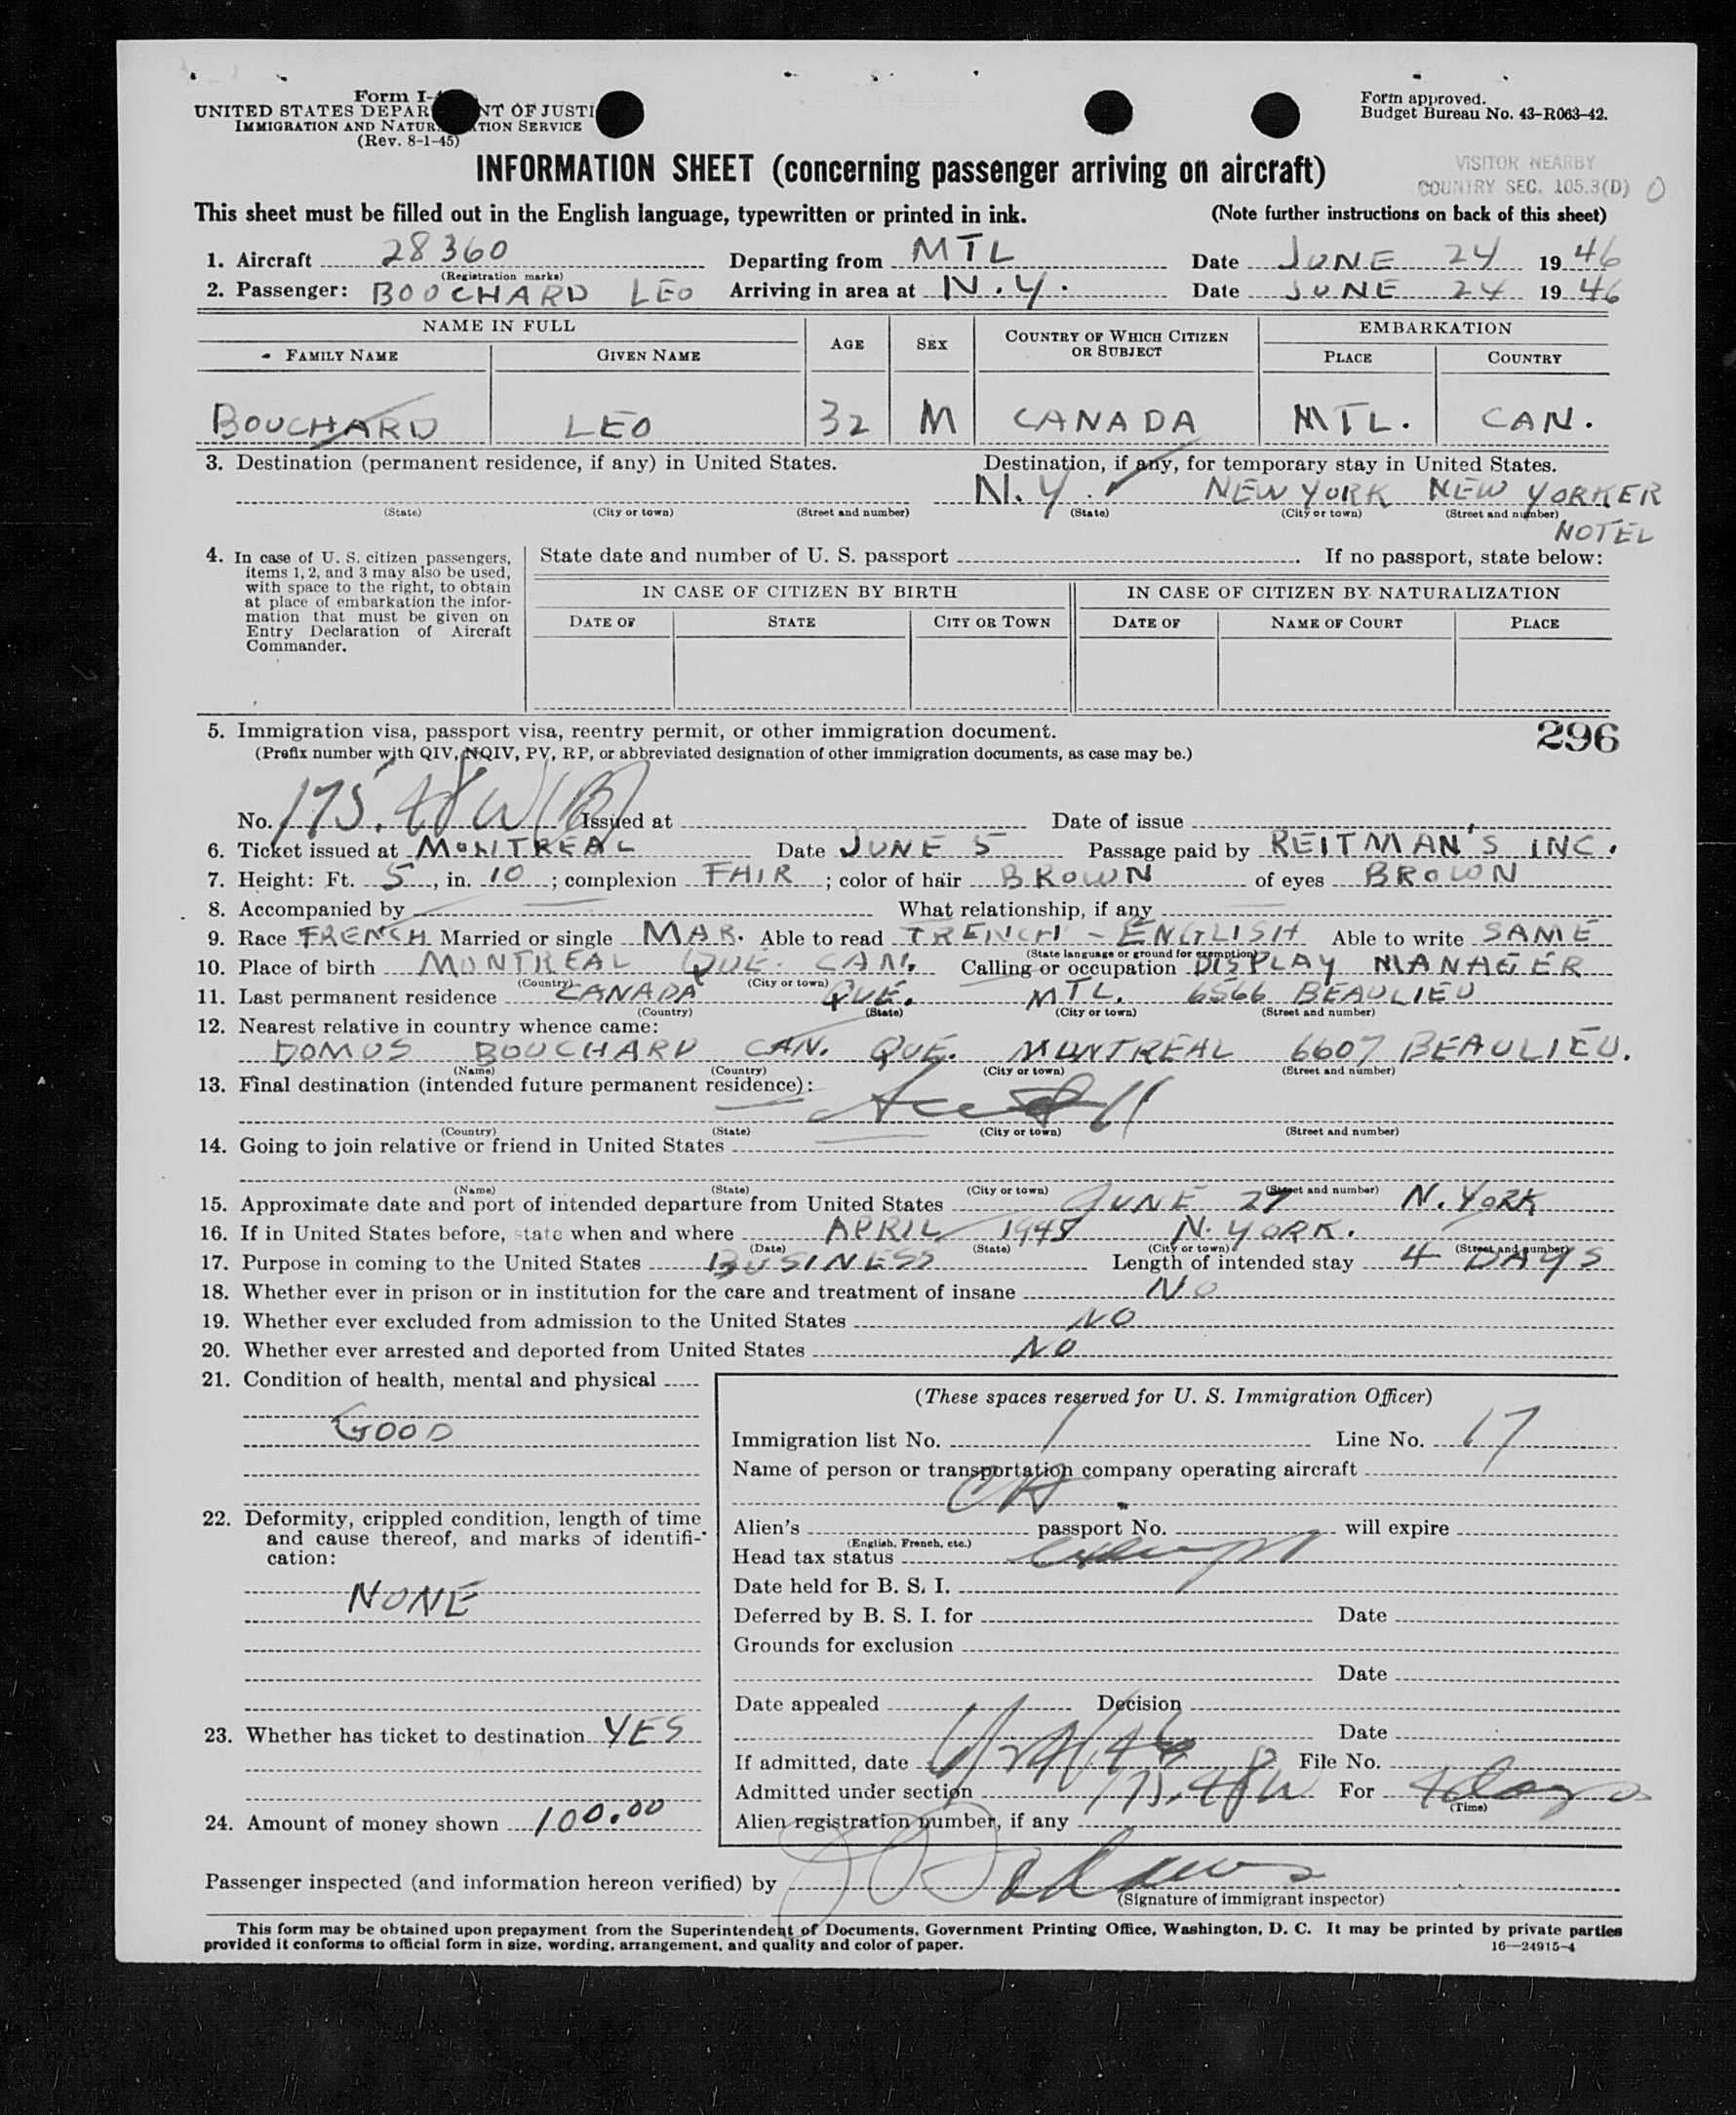 Form I-
UNITED STATES DEPAR NT OF JUSTI
IMMIGRATION AND NATUR TION SERVICE
(Rev. 8-1-45)
Form approved.
Budget Bureau No. 43-R063-42.
INFORMATION SHEET (concerning passenger arriving on aircraft)
VISITOR NEARBY
COUNTRY SEC. 105.3(D)
This sheet must be filled out in the English language, typewritten or printed in ink. (Note further instructions on back of this sheet)
1. Aircraft 28360 Departing from MTL Date JUNE 24 1946
(Registration marks)
2. Passenger: BOUCHARD LEO Arriving in area at N.Y. Date JUNE 24 1946
NAME IN FULL AGE SEX COUNTRY OF WHICH CITIZEN OR SUBJECT EMBARKATION
FAMILY NAME GIVEN NAME PLACE COUNTRY
BOUCHARD LEO 32 M CANADA MTL. CAN.
3. Destination (permanent residence, if any) in United States. Destination, if any, for temporary stay in United States.
N.Y. NEW YORK NEW YORKER
(State) (City or town) (Street and number) (State) (City or town) (Street and number)
HOTEL
4. In case of U. S. citizen passengers, items 1, 2, and 3 may also be used, with space to the right, to obtain at place of embarkation the information that must be given on Entry Declaration of Aircraft Commander.
State date and number of U. S. passport . If no passport, state below:
IN CASE OF CITIZEN BY BIRTH IN CASE OF CITIZEN BY NATURALIZATION
DATE OF STATE CITY OR TOWN DATE OF NAME OF COURT PLACE
5. Immigration visa, passport visa, reentry permit, or other immigration document. 296
(Prefix number with QIV, NQIV, PV, RP, or abbreviated designation of other immigration documents, as case may be.)
No. 175.48W(B) Issued at Date of issue
6. Ticket issued at MONTREAL Date JUNE 5 Passage paid by REITMAN'S INC.
7. Height: Ft. 5, in. 10; complexion FAIR; color of hair BROWN of eyes BROWN
8. Accompanied by — What relationship, if any —
9. Race FRENCH Married or single MAR. Able to read FRENCH - ENGLISH Able to write SAME
(State language or ground for exemption)
10. Place of birth MONTREAL QUE. CAN. Calling or occupation DISPLAY MANAGER
(Country) (City or town)
11. Last permanent residence CANADA QUE. MTL. 6566 BEAULIEU
(Country) (State) (City or town) (Street and number)
12. Nearest relative in country whence came:
DOMUS BOUCHARD CAN. QUE. MONTREAL 6607 BEAULIEU.
(Name) (Country) (City or town) (Street and number)
13. Final destination (intended future permanent residence):
(Country) (State) (City or town) (Street and number)
14. Going to join relative or friend in United States
(Name) (State) (City or town) (Street and number)
15. Approximate date and port of intended departure from United States JUNE 27 N. YORK
16. If in United States before, state when and where APRIL 1945 N. YORK.
(Date) (State) (City or town) (Street and number)
17. Purpose in coming to the United States BUSINESS Length of intended stay 4 DAYS
18. Whether ever in prison or in institution for the care and treatment of insane NO
19. Whether ever excluded from admission to the United States NO
20. Whether ever arrested and deported from United States NO
21. Condition of health, mental and physical
GOOD
22. Deformity, crippled condition, length of time and cause thereof, and marks of identification:
NONE
23. Whether has ticket to destination YES
24. Amount of money shown 100.00
(These spaces reserved for U. S. Immigration Officer)
Immigration list No. 1 Line No. 17
Name of person or transportation company operating aircraft
Alien's passport No. will expire
(English, French, etc.)
Head tax status exempt
Date held for B. S. I.
Deferred by B. S. I. for Date
Grounds for exclusion
Date
Date appealed Decision
Date
If admitted, date 6/24/46 File No.
Admitted under section 175.48W For 4 days
(Time)
Alien registration number, if any
Passenger inspected (and information hereon verified) by
(Signature of immigrant inspector)
This form may be obtained upon prepayment from the Superintendent of Documents, Government Printing Office, Washington, D. C. It may be printed by private parties
provided it conforms to official form in size, wording, arrangement, and quality and color of paper. 16—24915-4